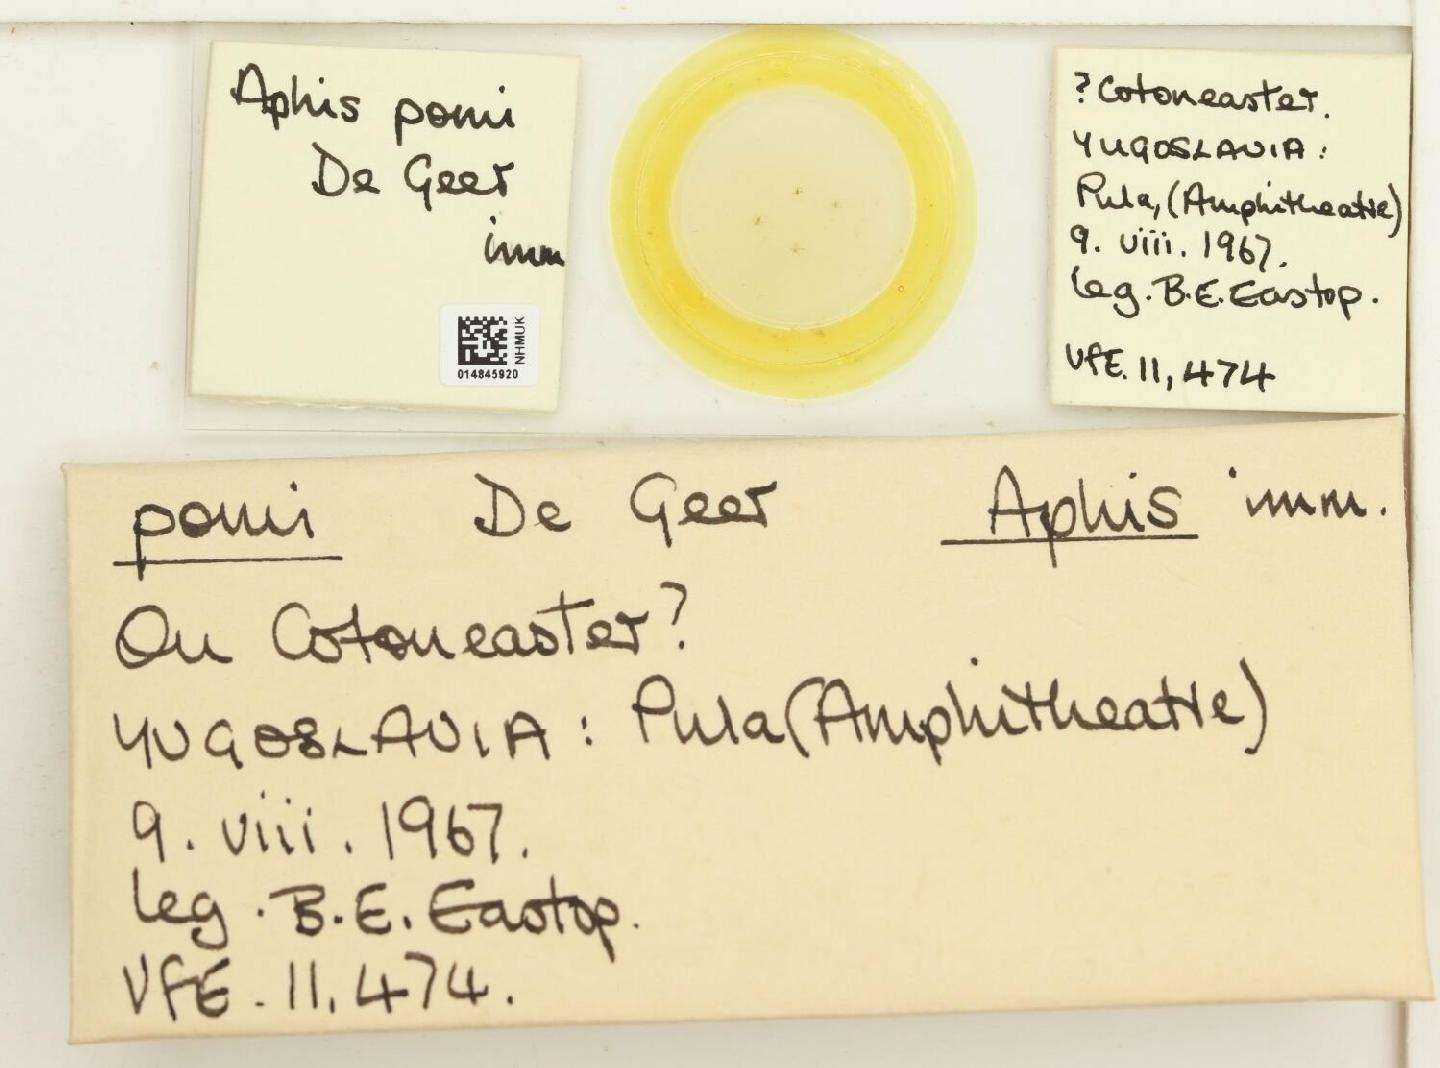 Aphis pomi
De Geer
imm
NHMUK
014845920
?Cotoneaster.
YUGOSLAVIA:
Pula, (Amphitheatre)
9. viii. 1967.
leg. B.E. Eastop.
VFE. 11,474
pomi De Geer Aphis imm.
On Cotoneaster?
YUGOSLAVIA: Pula (Amphitheatre)
9. viii. 1967.
leg. B.E. Eastop.
VFE. 11,474.